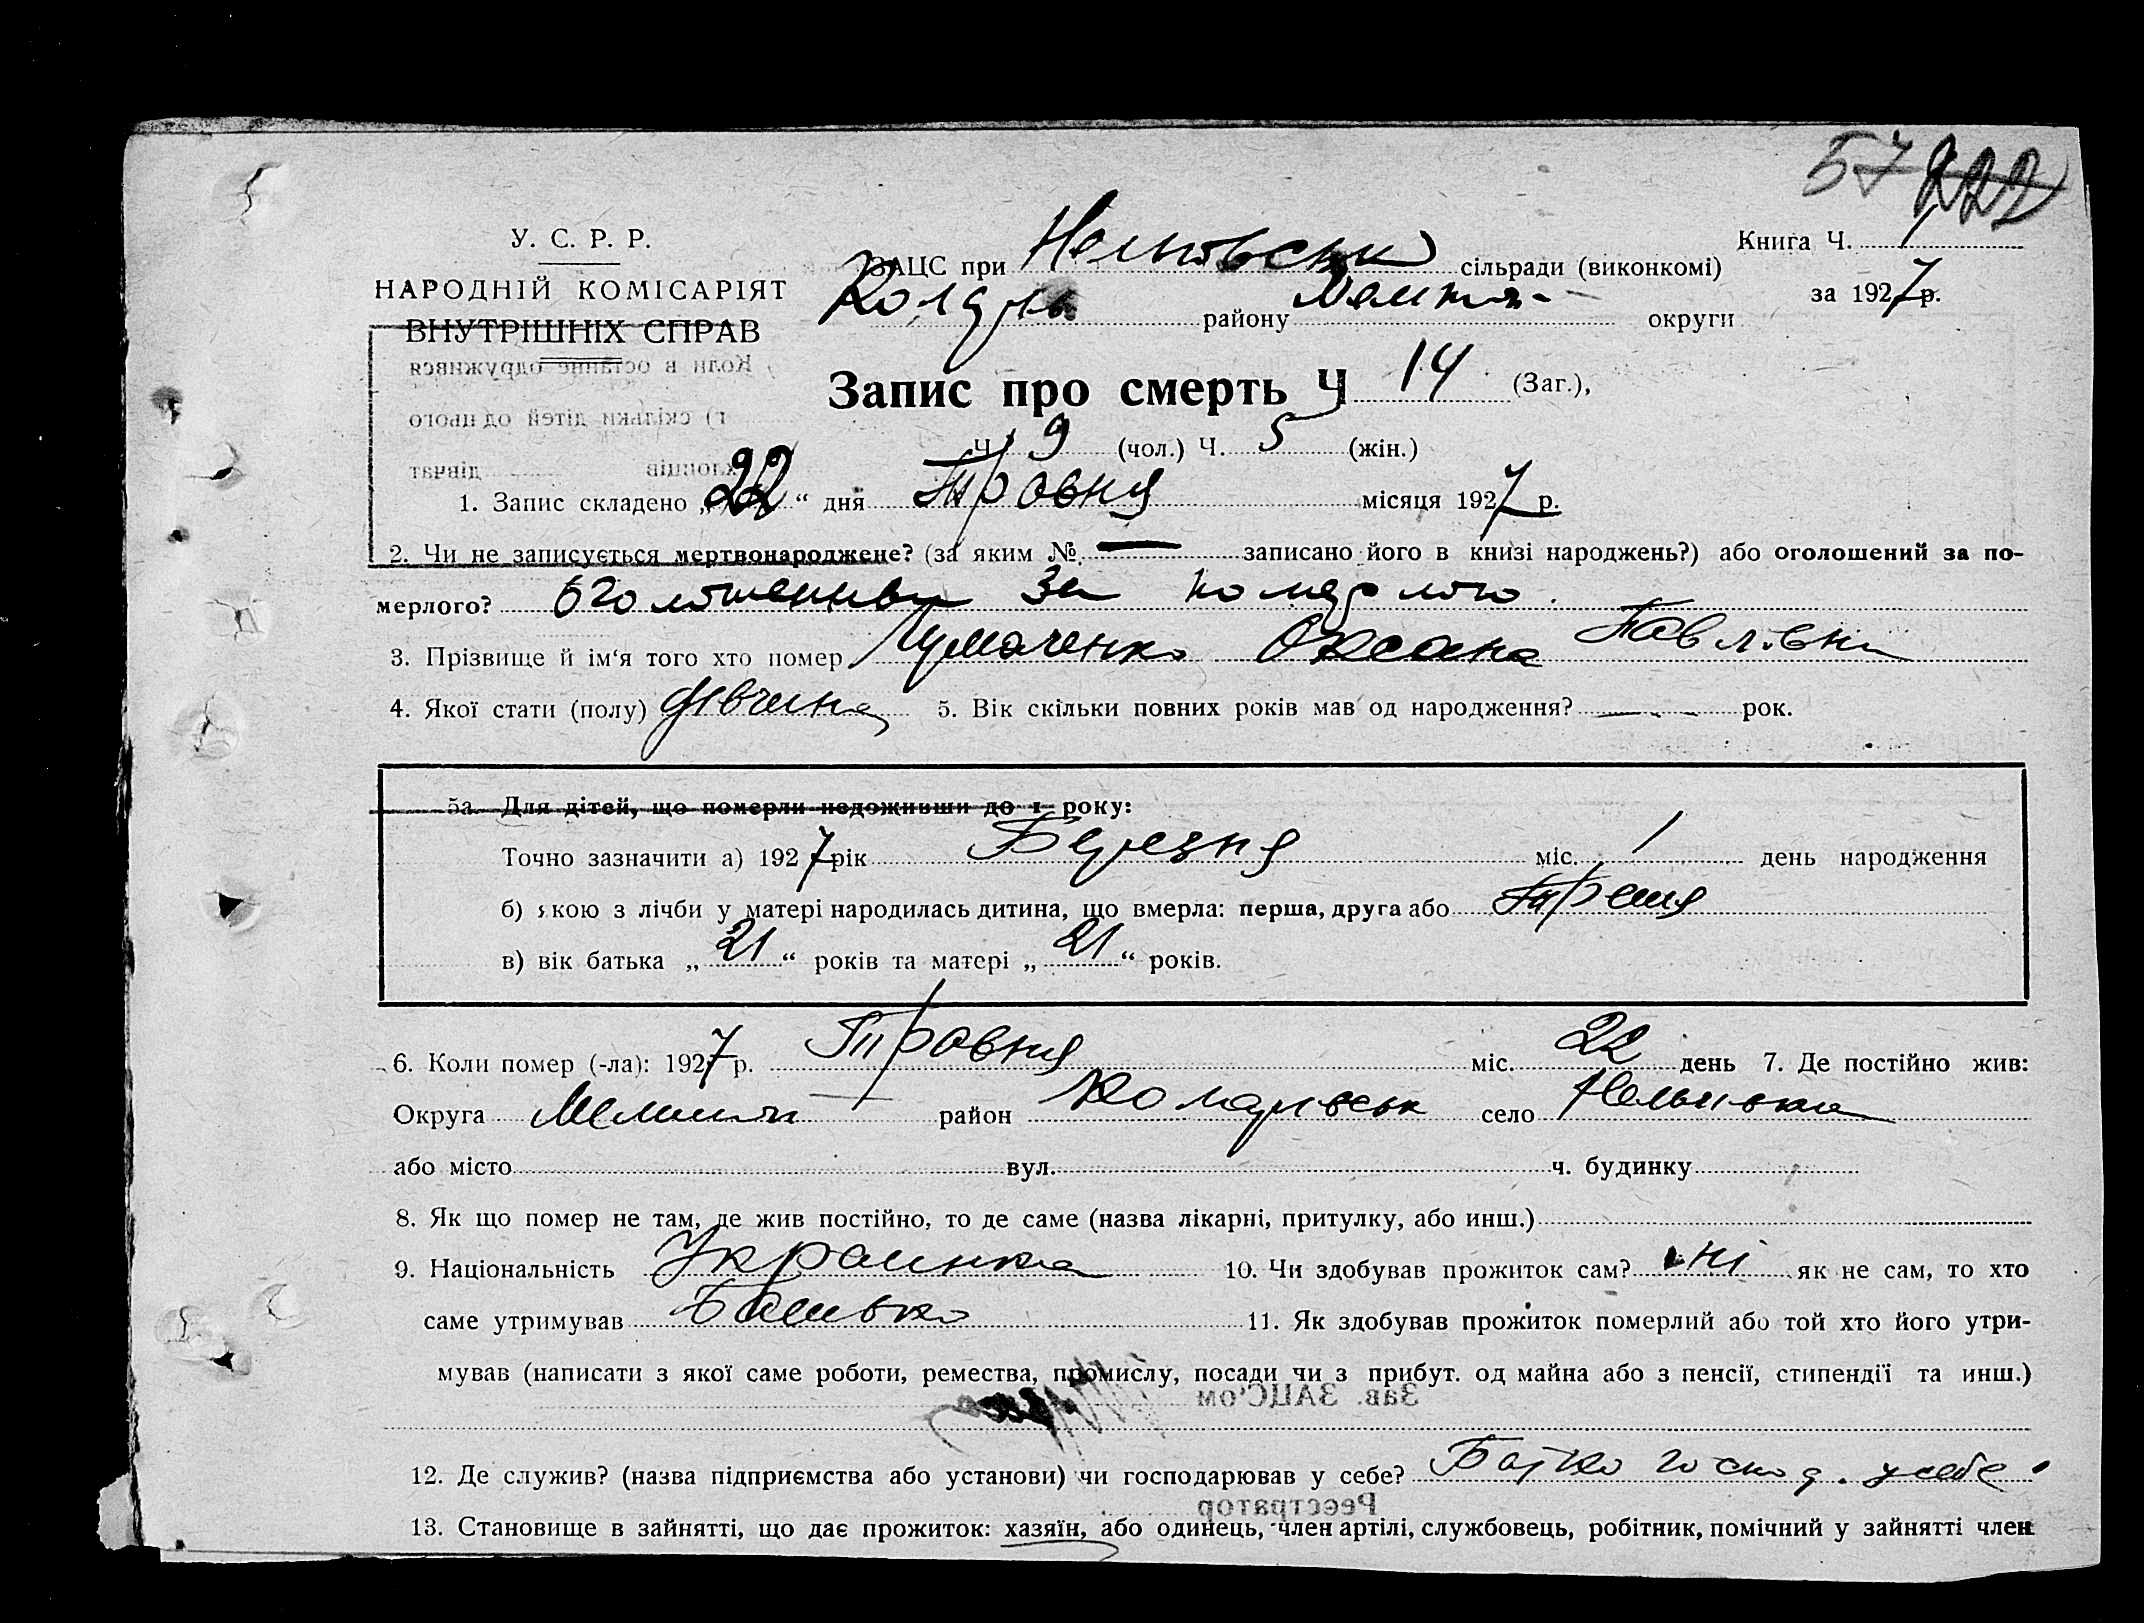 57 222
У. С. Р. Р.
НАРОДНІЙ КОМІСАРІЯТ
ВНУТРІШНІХ СПРАВ
Книга Ч. 1
ЗАЦС при сільради (виконкомі)
за 1927 р.
району округи
Запис про смерть Ч 14 (Заг.),
Ч. 9 (чол.) Ч. 5 (жін.)
1. Запис складено „22“ дня Травня місяця 1927 р.
2. Чи не записується мертвонароджене? (за яким № — записано його в книзі народжень?) або оголошений за по-
мерлого? за
3. Прізвище й ім‘я того хто помер Чумаченко Оксана Павлівна
4. Якої стати (полу) дівчина 5. Вік скільки повних років мав од народження? — рок.
5а. Для дітей, що померли недоживши до 1 року:
Точно зазначити а) 1927 рік Березня міс. 1 день народження
б) якою з лічби у матері народилась дитина, що вмерла: перша, друга або Третя
в) вік батька „21“ років та матері „21“ років.
6. Коли помер (-ла): 1927 р. Травня міс. 22 день 7. Де постійно жив:
Округа район село
або місто вул. ч. будинку
8. Як що помер не там, де жив постійно, то де саме (назва лікарні, притулку, або инш.)
9. Національність Украинка 10. Чи здобував прожиток сам? ні як не сам, то хто
саме утримував Батько 11. Як здобував прожиток померлий або той хто його утри-
мував (написати з якої саме роботи, ремества, промислу, посади чи з прибут. од майна або з пенсії, стипендії та инш.)
Зав. ЗАЦС'ом
12. Де служив? (назва підприємства або установи) чи господарював у себе? Батко господ. у себе.
Реєстратор
13. Становище в зайнятті, що дає прожиток: хазяїн, або одинець, член артілі, службовець, робітник, помічний у зайнятті член